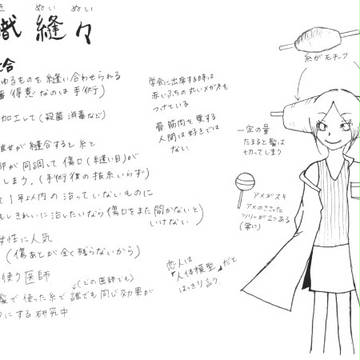 ぬい ぬい
織 縫々
合
ゆるものを縫い合わせられる
得意なのは手術)
加工して(殺菌消毒など)
せが縫合すると糸と
が同調して傷口(縫い目)が
しまう。(手術後の抜糸いらず)
て1年以内の治っていないものに
しきれいに治したいなら傷口をまた開かないと
いけない)
性に人気
(傷あとが全く残らないから)
使う医師
(どの医師でも)
で使った糸で誰でも同じ効果が
にする研究中
学会に出席する時は
赤いふちの丸いメガネを
つけている
骨筋肉を愛する
人間は好きでは
ない
恋人は
"人体模型"だと
はっきり言う
糸がモチーフ
一定の量
たまると髪は
切ってしまう
アメがスキ
アメのささった
ツリーが2つある
(家に)